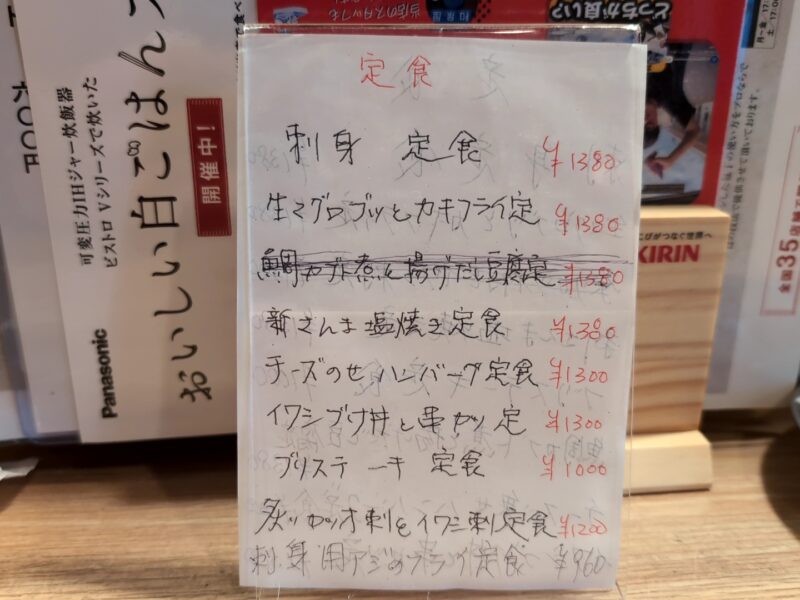 定食
刺身 定食 ¥1380
生マグロブツとカキフライ定 ¥1380
鯛カブト煮と揚げだし豆腐定 ¥1380
新さんま塩焼き定食 ¥1380
チーズのせハンバーグ定食 ¥1300
イワシブツ丼と串カツ定 ¥1300
ブリステーキ 定食 ¥1000
炙りカツオ刺とイワシ刺定食 ¥1200
刺身用アジのフライ定食 ¥960
可変圧力IHジャー炊飯器
ビストロ Vシリーズで炊いた
おいしい白ごはん
開催中!
Panasonic
どっちが良い?
当店のスタッフも
和泉屋
KIRIN
全国35店舗で